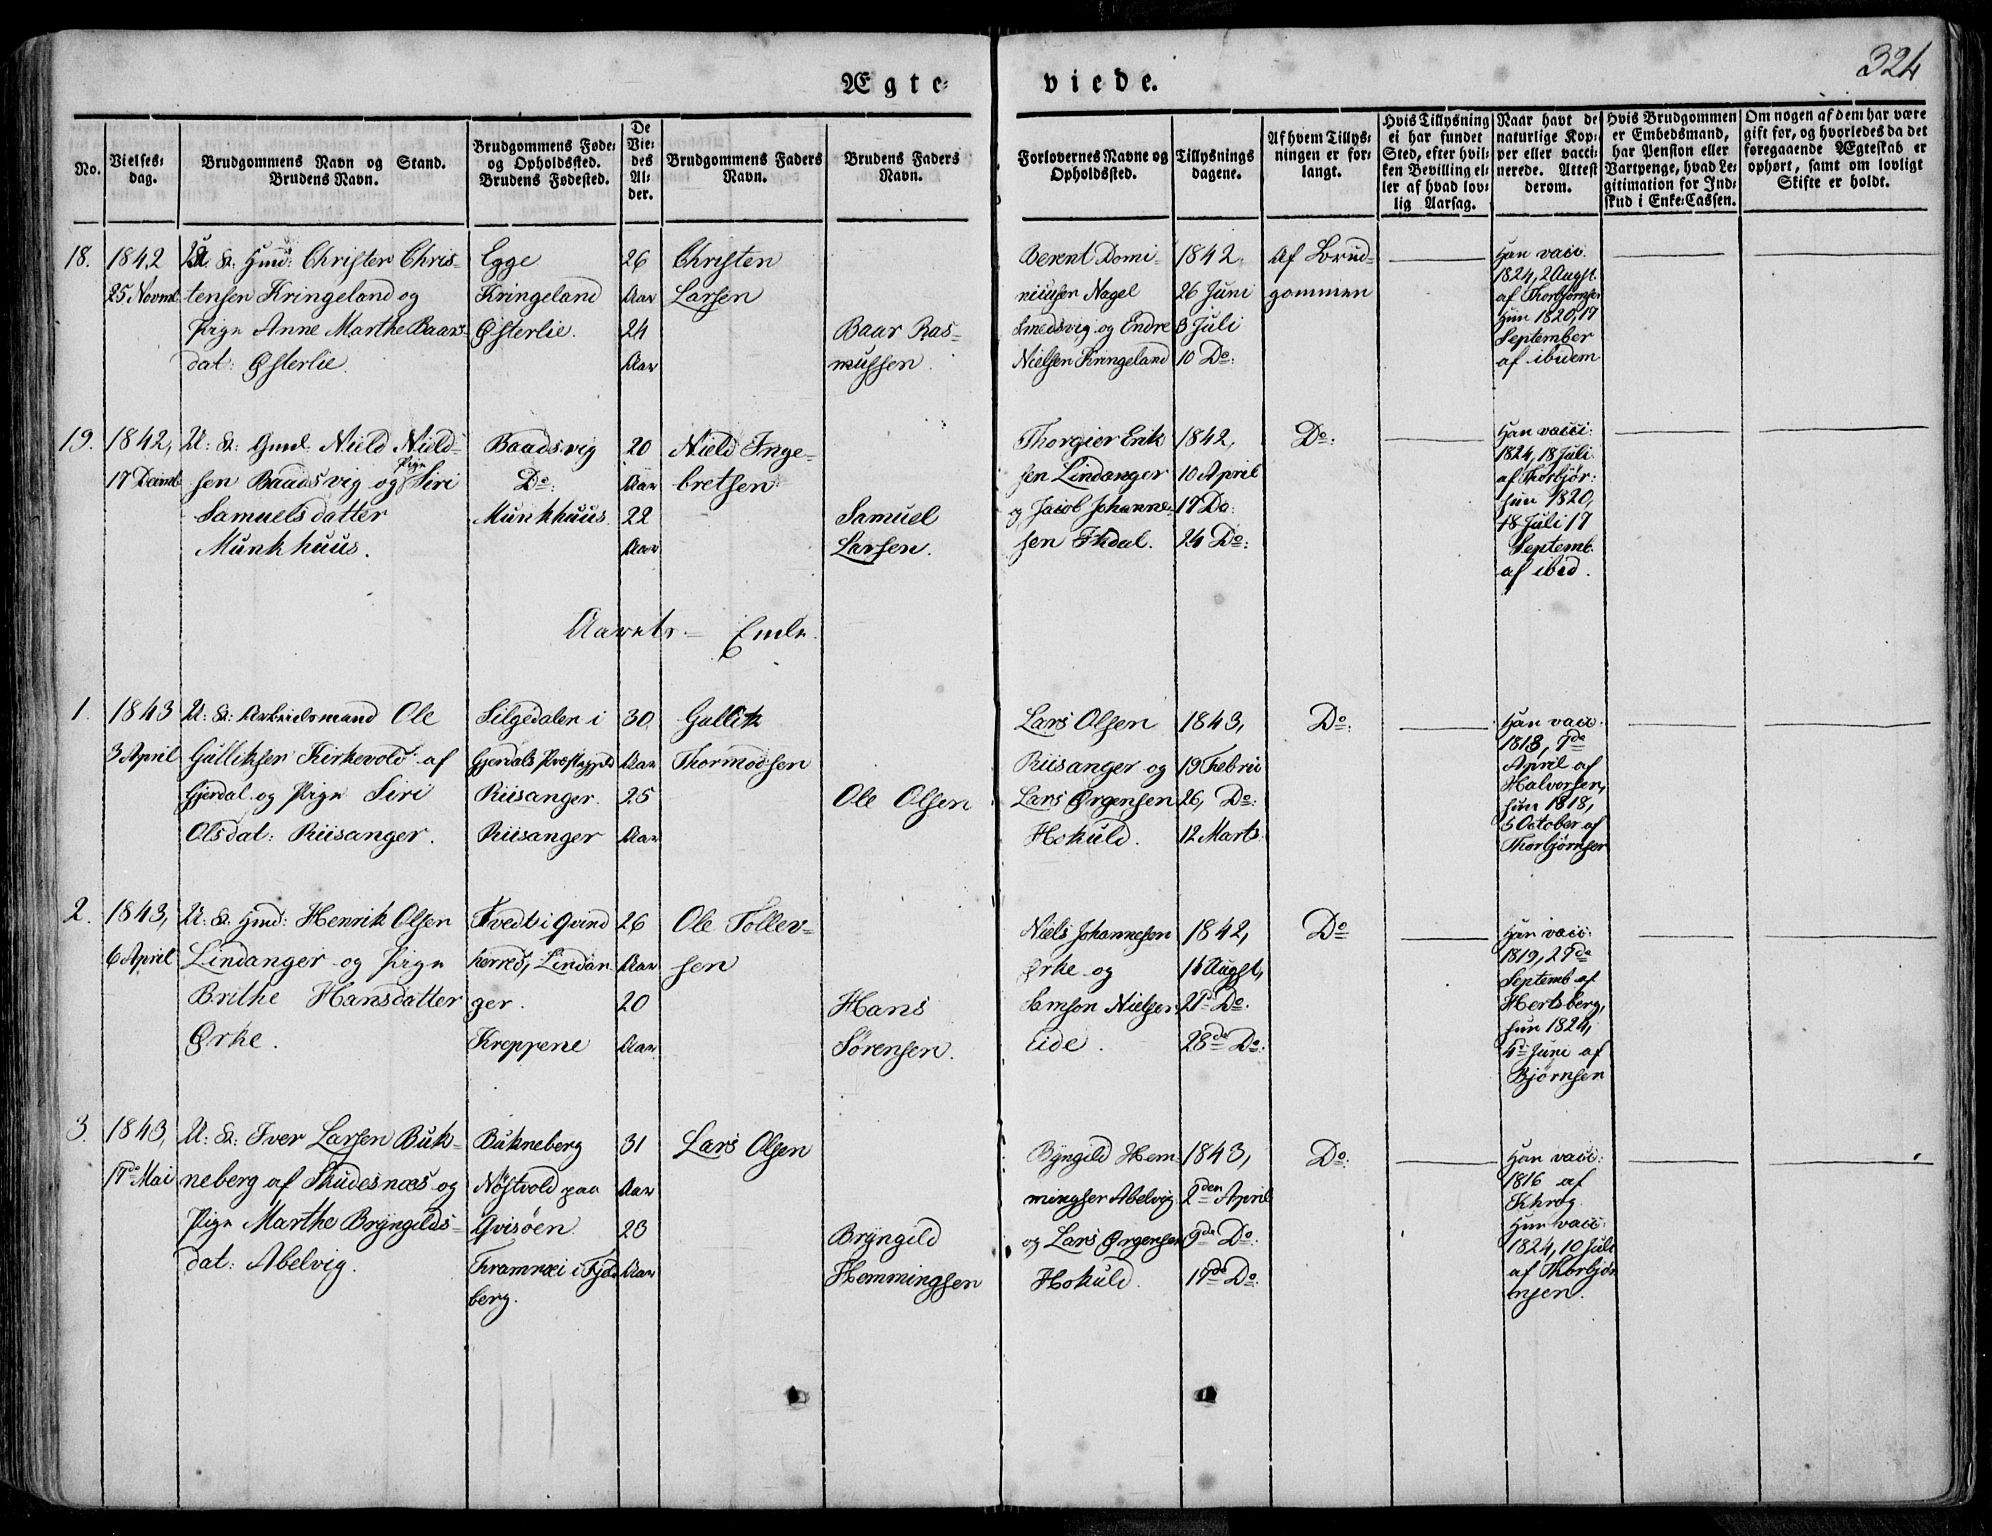 324
Ægte-
viede.
No.
Vielses-
dag.
Brudgommens Navn og Stand.
Brudens Navn.
Brudgommens Føde-
og Opholdssted.
Brudens Fødested.
De
Vie-
des
Al-
der.
Brudgommens Faders
Navn.
Brudens Faders
Navn.
Forlovernes Navne og
Opholdssted.
Tillysnings
dagene.
Af hvem Tillys-
ningen er for-
langt.
Hvis Tillysning
ei har fundet
Sted, efter hvil-
ken Bevilling el-
ler af hvad lov-
lig Aarsag.
Naar havt de
naturlige Kop-
per eller vacci-
nerede. Attest
derom.
Hvis Brudgommen
er Embedsmand,
har Pension eller
Vartpenge, hvad Le-
gitimation for Ind-
skud i Enke-Cassen.
Om nogen af dem har være
gift før, og hvorledes da det
foregaaende Ægteskab er
ophørt, samt om lovligt
Skifte er holdt.
18.
1842
25 Novmb
Christen Chris-
tensen Kringeland og
Pige Anne Marthe Baars-
dat: Østerlie.
Egge
Kringeland
Østerlie.
26
Aar
24
Aar
Christen
Larsen
Baar Ras-
mussen.
Berent Domi-
niusen Nagel
Smedsvig og Endre
Nielsen Kringeland
1842
26 Juni
3 Juli
10 Do:
Af Brud-
gommen
Han vacc.
1824, 2 Augst.
af Thorbjørnsen
Hun 1820, 17
September
af ibidem
19.
1842,
17 Decmb
U: K: Gmd Nield Nield-
sen Baadsvig og Pige Siri
Samuelsdatter
Munkhuus.
Baadsvig
Do:
Munkhuus
20
Aar
22
Aar
Nield Inge-
bretsen
Samuel
Larsen.
Thorgier Erik
sen Lindanger
og Jacob Johanne-
sen Ekdal.
1842,
10 April
17 Do:
24 Do:
Do:
Han vacci:
1824, 18 Juli
af Thorbjør:
hun 1820,
18 Juli 17
Septemb.
af ibid.
Aarets - Ende.
1.
1843
3 April
U: K: Arbeidsmand Ole
Gulliksen Kirkevold af
Gjerdal og Pige Siri
Olsdat: Riisanger.
Silgedalen i
Gjerdals Præstegjeld
Riisanger.
Riisanger
30
Aar
25
Aar
Gullik
Thormodsen
Ole Olsen
Lars Olsen
Riisanger og
Lars Ørgensen
Hokuld.
1843,
19 Febru
26, Do:
12 Marts.
Do:
Han vacc.
1813, 7de
April af
Halvorsen,
hun 1818,
5 October af
Thorbjørnsen
2.
1843,
6 April
U: K: Gmd: Henrik Olsen
Lindanger og Pige
Brithe Hansdatter
Ørke.
Tvedt i Qvind
herred, Lindan
ger.
Kreppene
26
Aar
20
Aar
Ole Tollev-
sen
Hans
Sørensen.
Niels Johannesen
Ørke og
Samson Nielsen
Eide.
1842,
14 Augst,
21de Do:
28de Do:
Do
Han vacc:
1819, 29de
Septemb af
Hertsberg,
hun 1824,
4de Juni af
Bjørnsen
3.
1843,
17de Mai
U: K: Iver Larsen Buk-
neberg af Skudesnæs og
Pige Marthe Bryngilds-
dat: Abelvig.
Bukneberg
Nøstvold paa
Qvisøen.
Framnæi i Fjeld
berg.
31
Aar
23
Aar
Lars Olsen
Bryngild
Hemmingsen
Byngild Hem-
mingsen Abelvig
og Lars Ørgensen
Hokuld.
1843,
2den April
9de Do:
17de Do:
Do:
Han vacc:
1816 af
Khrog
Hun vacc:
1824, 10 Juli
af Thorbjør
nsen.